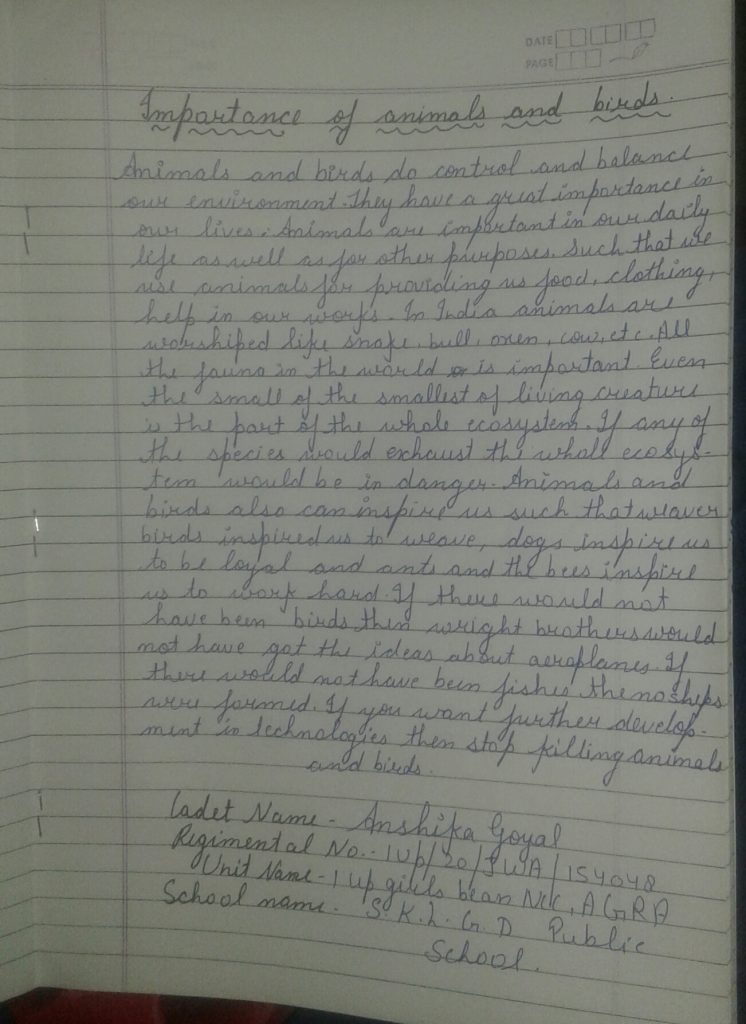 DATE
PAGE
Importance of animals and birds.
Animals and birds do control and balance
our environment. They have a great importance in
our lives. Animals are important in our daily
life as well as for other purposes. Such that we
use animals for providing us food, clothing,
help in our works. In India animals are
worshiped like snake, bull, oxen, cow, etc. All
the fauna in the world is important. Even
the small of the smallest of living creature
is the part of the whole ecosystem. If any of
the species would exhaust the whole ecosys-
tem would be in danger. Animals and
birds also can inspire us such that weaver
birds inspired us to weave, dogs inspire us
to be loyal and ants and the bees inspire
us to work hard. If there would not
have been birds then wright brothers would
not have got the ideas about aeroplanes. If
there would not have been fishes then no ships
were formed. If you want further develop-
ment in technologies then stop killing animals
and birds.
Cadet Name - Anshika Goyal
Regimental No. - 1 Up/20/JWA/154048
Unit Name - 1 up girls bean Ncc, AGRA
School name - S. K. L. G. D Public
School.